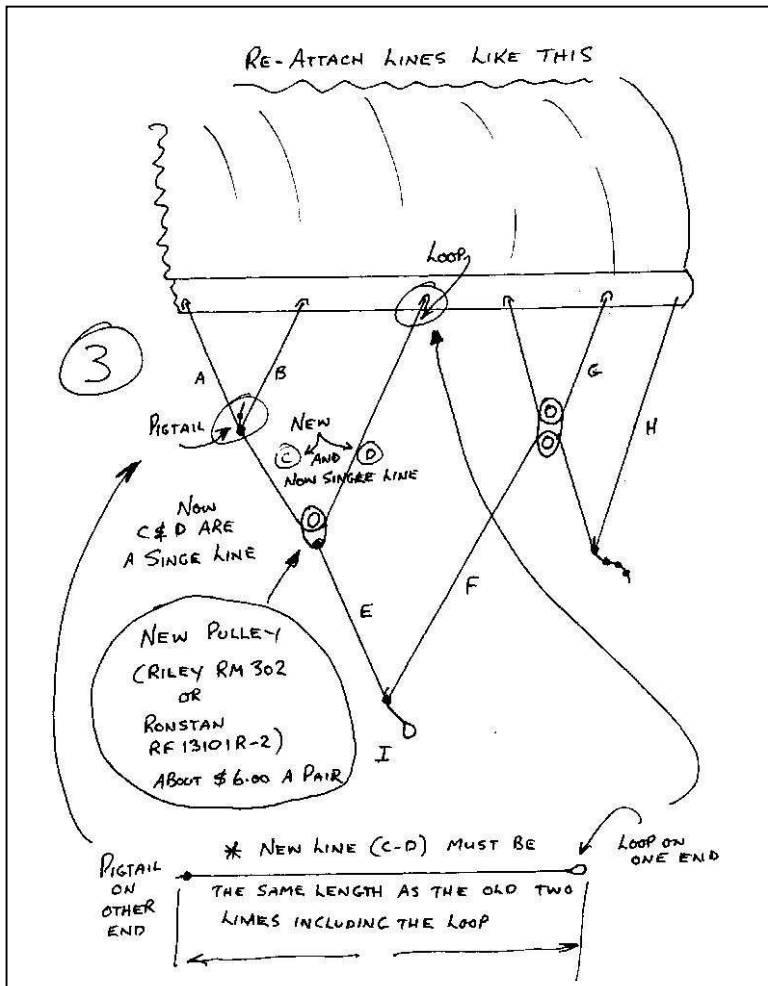 RE-ATTACH LINES LIKE THIS
LOOP
3
A
B
G
H
PIGTAIL
NEW
C AND D
NOW SINGLE LINE
NOW
C & D ARE
A SINGE LINE
E
F
NEW PULLEY
(RILEY RM 302
OR
RONSTAN
RF 13101R-2)
ABOUT $6.00 A PAIR
I
* NEW LINE (C-D) MUST BE
THE SAME LENGTH AS THE OLD TWO
LIMES INCLUDING THE LOOP
PIGTAIL
ON
OTHER
END
LOOP ON
ONE END